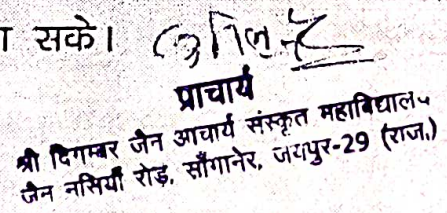 सके। अनिल
प्राचार्य
श्री दिगम्बर जैन आचार्य संस्कृत महाविद्यालय
जैन नसियाँ रोड़, साँगानेर, जयपुर-29 (राज.)